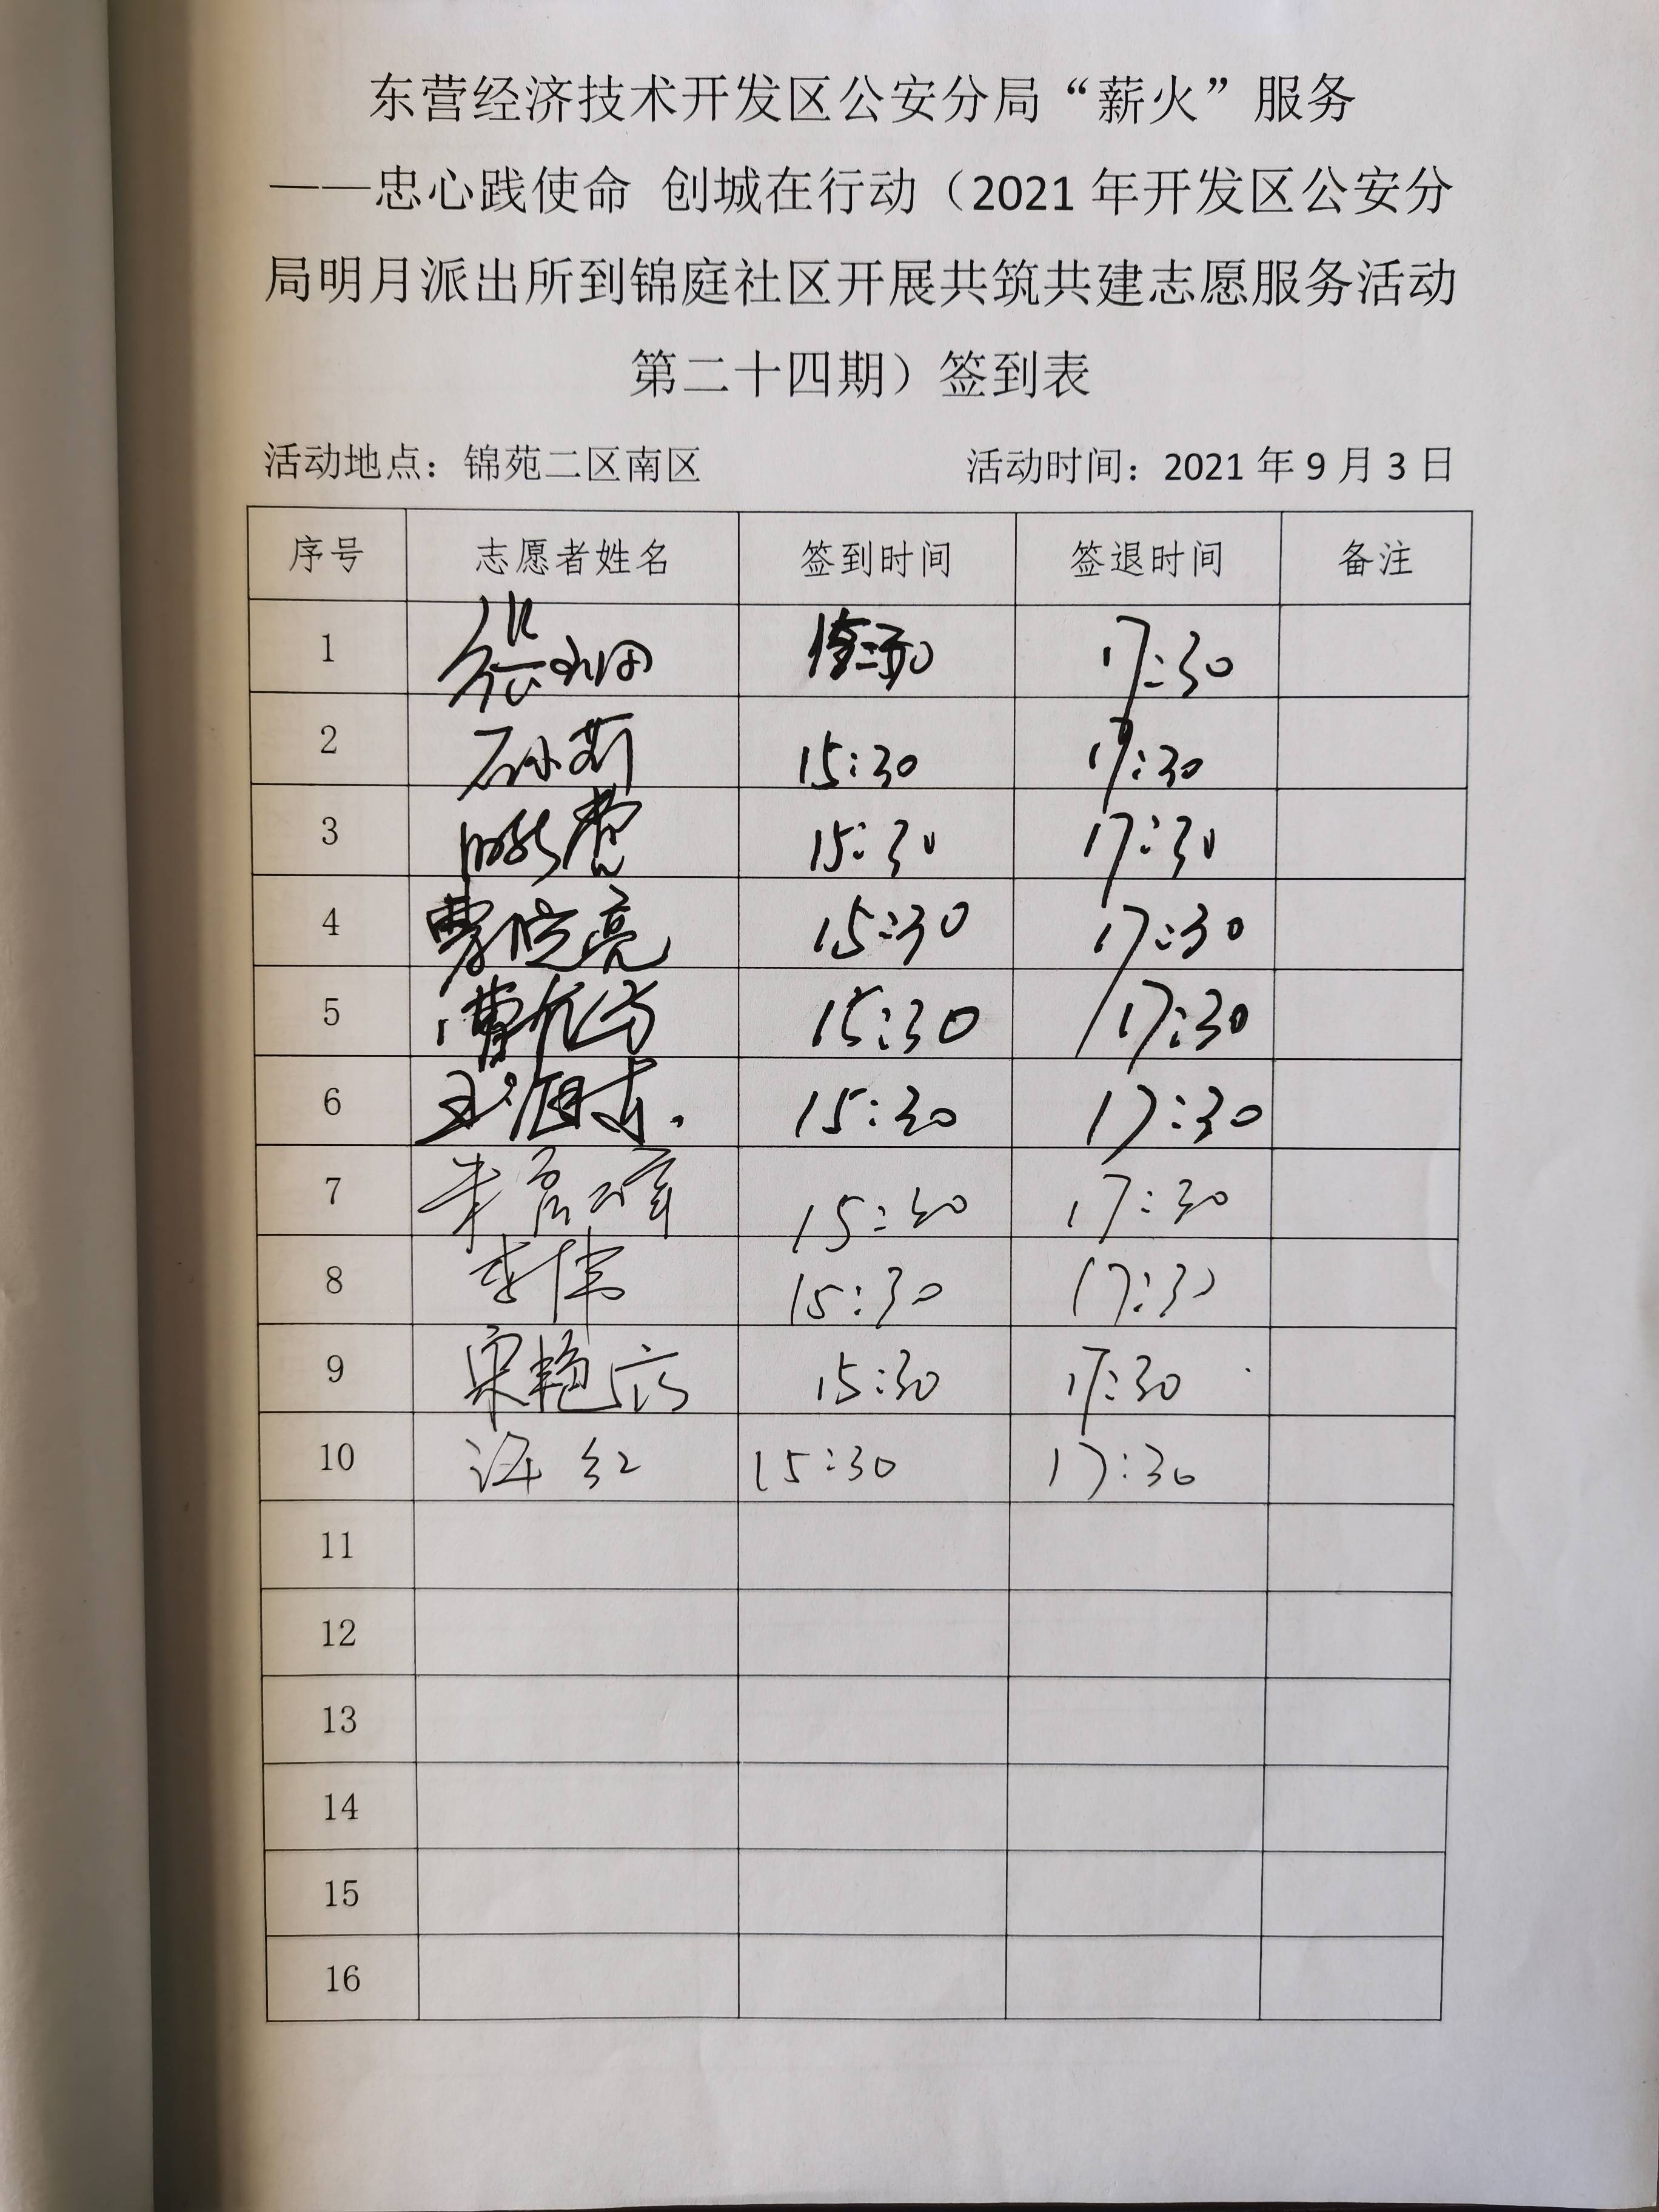 东营经济技术开发区公安分局“薪火”服务
——忠心践使命 创城在行动（2021 年开发区公安分
局明月派出所到锦庭社区开展共筑共建志愿服务活动
第二十四期）签到表
活动地点：锦苑二区南区 活动时间：2021 年 9 月 3 日
序号 志愿者姓名 签到时间 签退时间 备注
1 17:30
2 15:30 17:30
3 15:30 17:30
4 亮 15:30 17:30
5 曹 15:30 17:30
6 王 15:30 17:30
7 15:30 17:30
8 李伟 15:30 17:30
9 宋艳 15:30 17:30
10 红 15:30 17:30
11
12
13
14
15
16